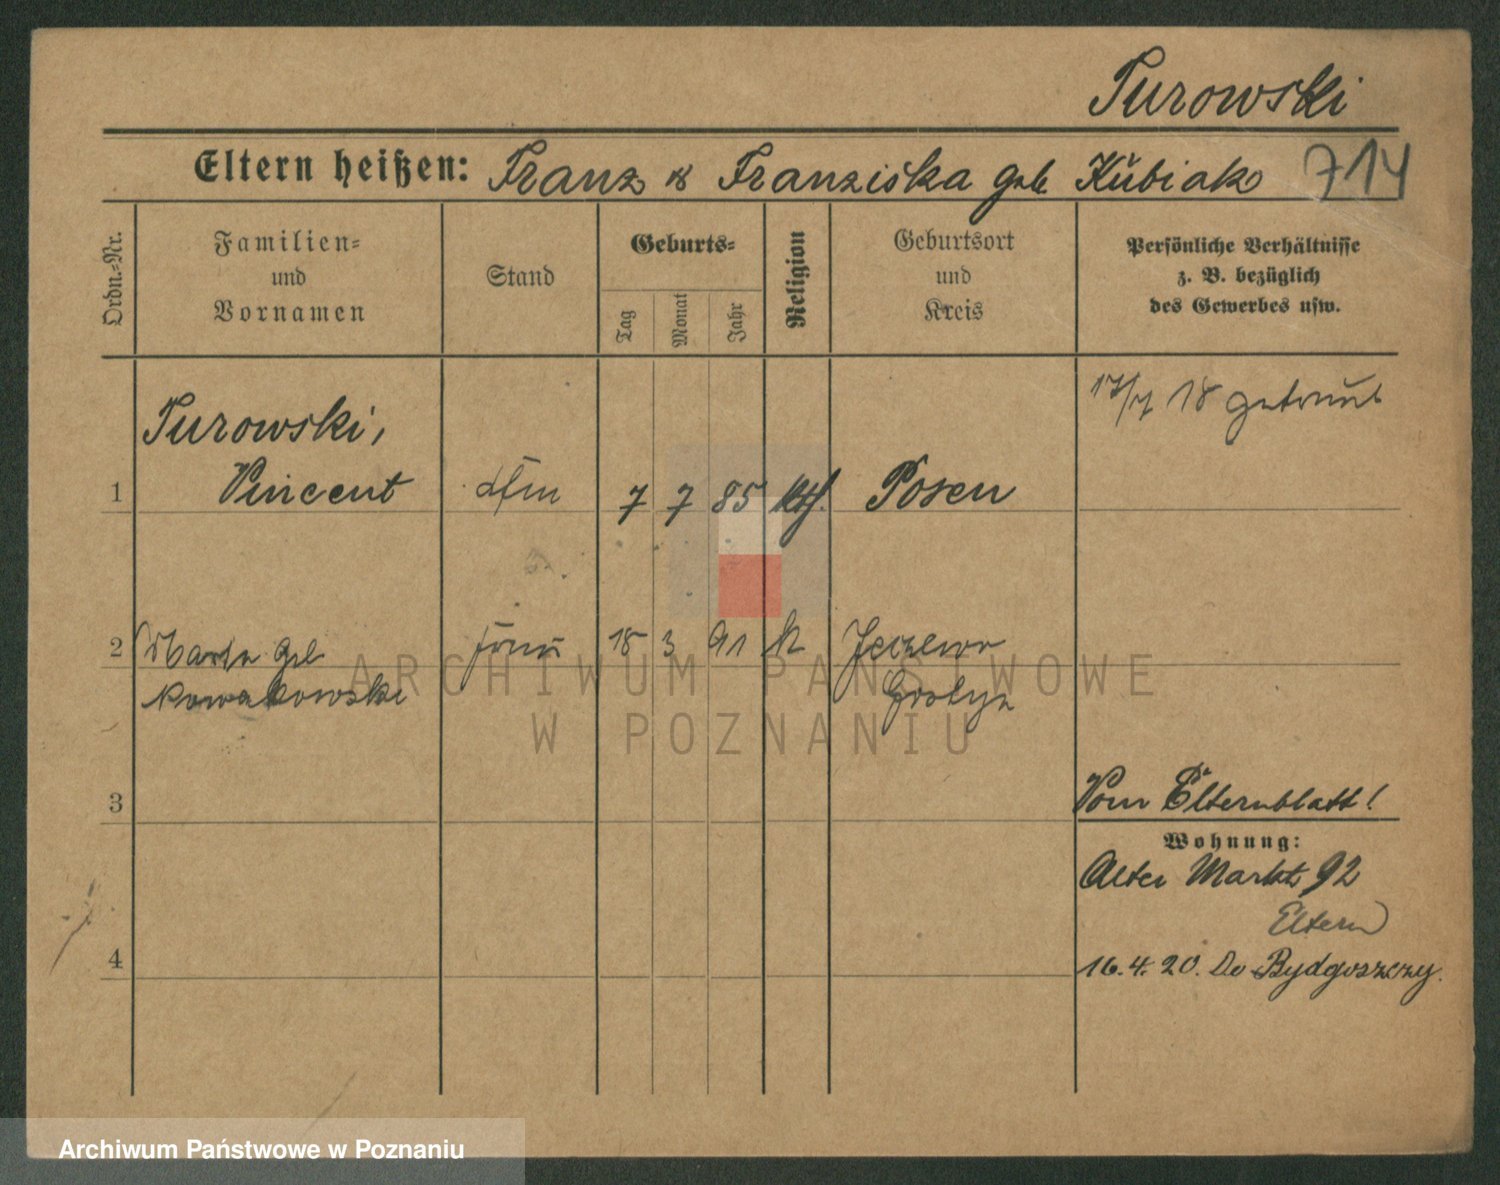 Turowski
Eltern heißen: Franz & Franziska geb. Kubiak 714
Ordn.-Nr.
Familien- und Vornamen
Stand
Geburts-
Tag
Monat
Jahr
Religion
Geburtsort und Kreis
Persönliche Verhältnisse z. B. bezüglich des Gewerbes usw.
17/7 18 getraut
Turowski,
1 Vincent 7 7 85 kth. Posen
2 Maria geb 18 3 91 k Jezewo
Nowakowski Gostyn
3 Vom Elternblatt!
Wohnung:
Alter Markt 92
Eltern
4 16.4.20. Do Bydgoszczy.
ARCHIWUM PAŃSTWOWE
W POZNANIU
Archiwum Państwowe w Poznaniu